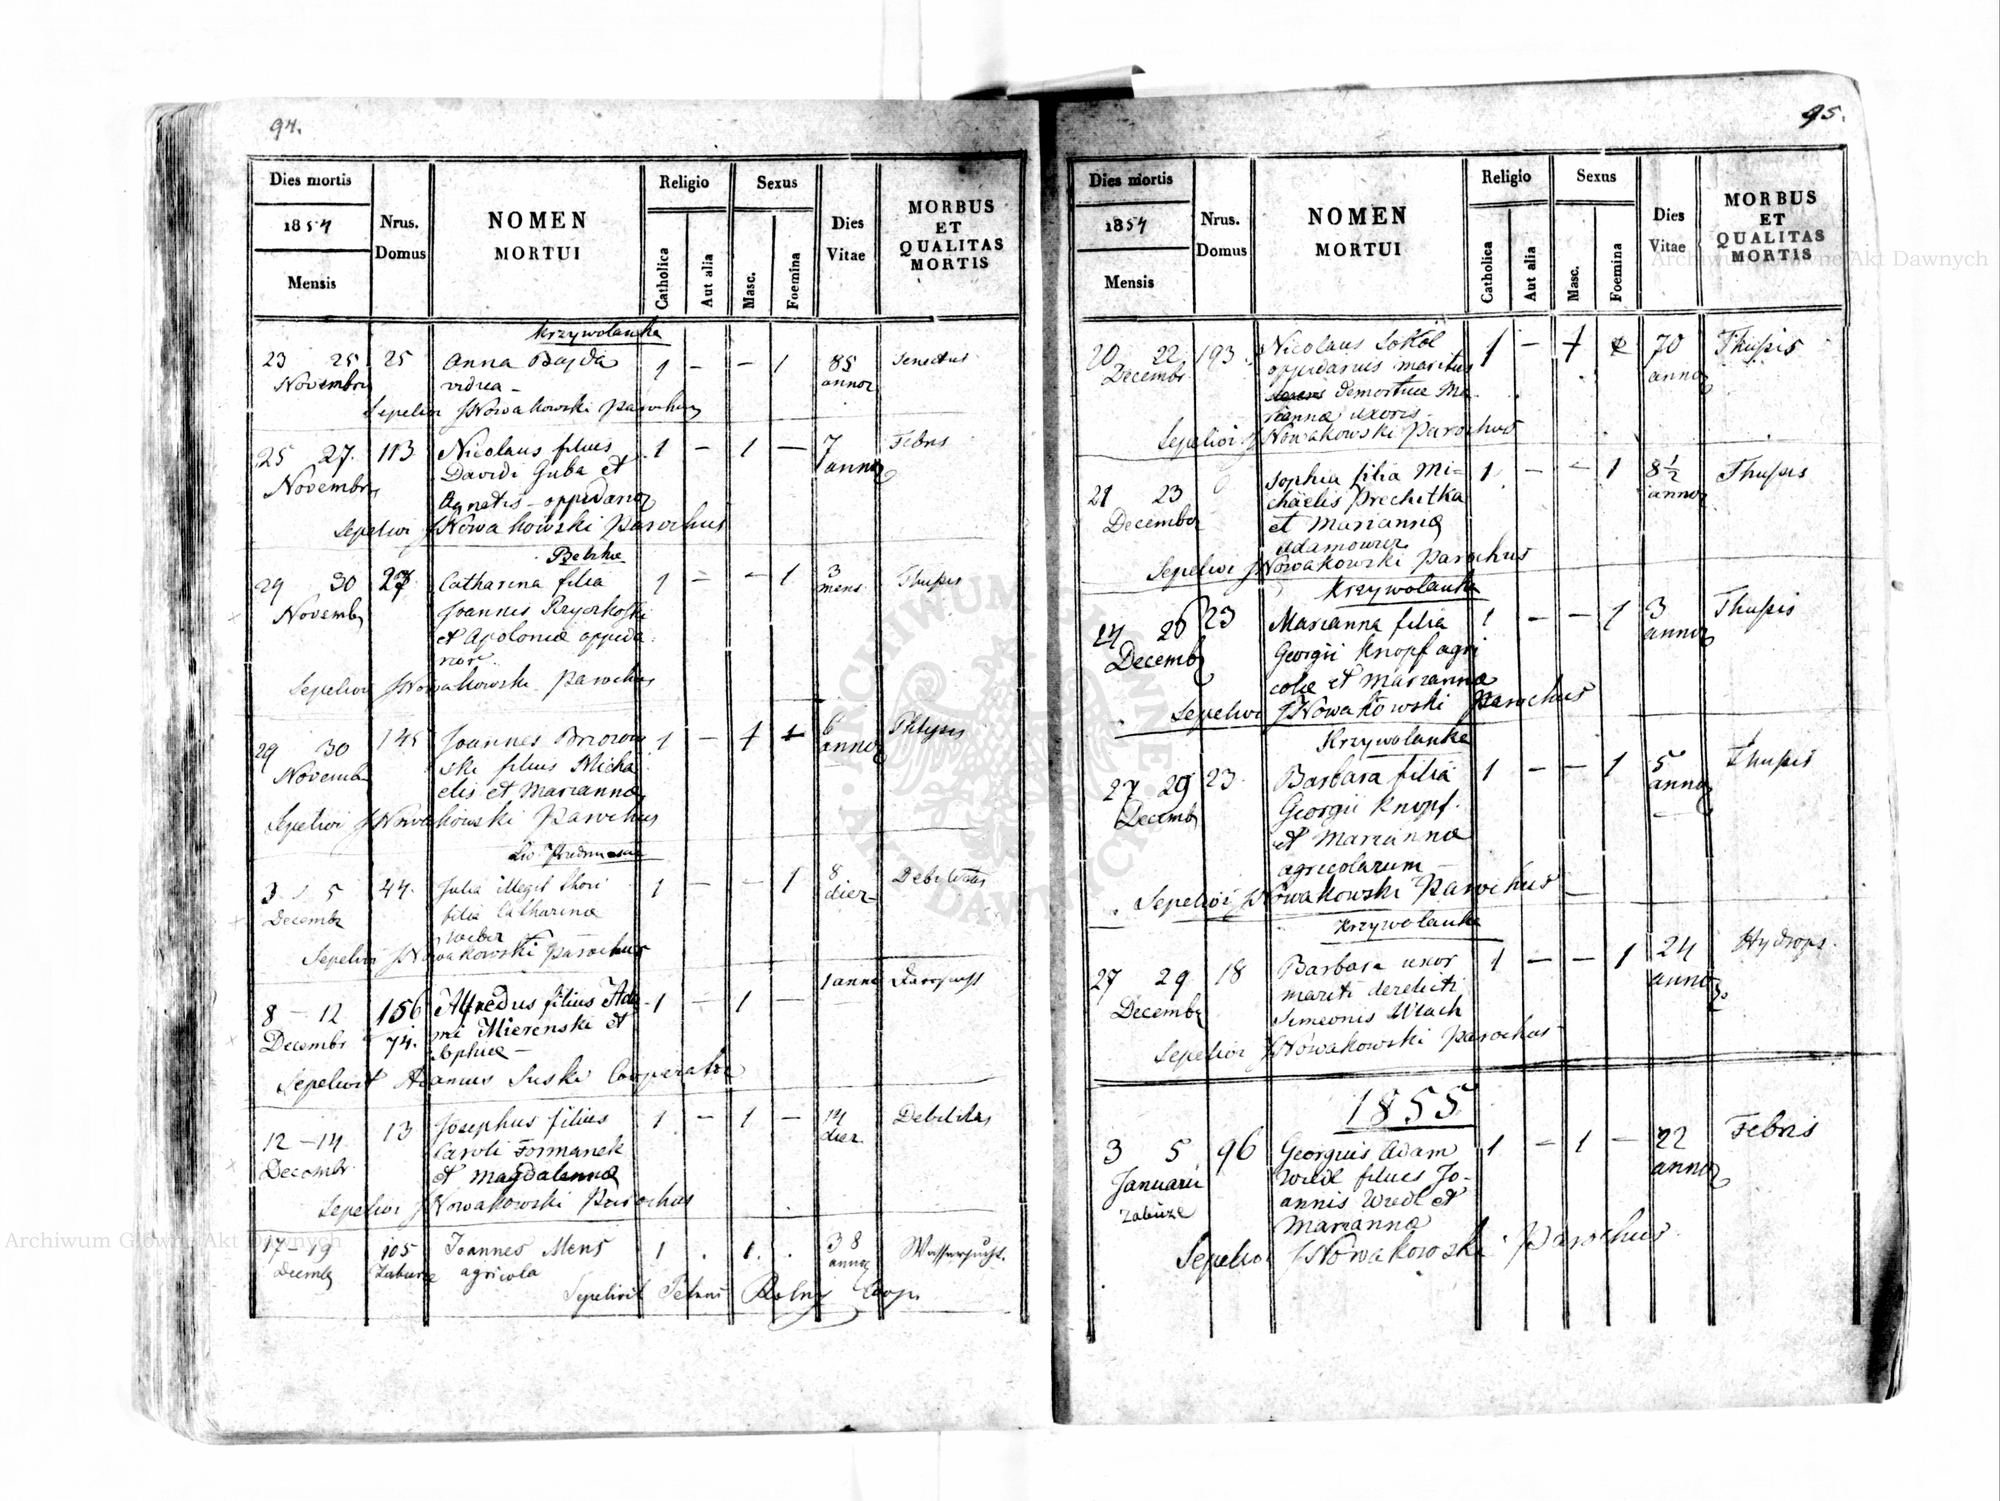 94.
Dies mortis
1854
Mensis
Nrus.
Domus
NOMEN
MORTUI
Religio
Catholica
Aut alia
Sexus
Masc.
Foemina
Dies
Vitae
MORBUS
ET
QUALITAS
MORTIS
Krzywolanka
23 25 25 Anna Bajda 1 - - 1 85 Senectus
Novembr vidua - annor
Sepelivi JNowakowski Parochus
25 27. 113 Nicolaus filius 1 - 1 - 7 Febris
Novembr Davidi Guba et annor
Agnetis - oppidanor
Sepelivi JNowakowski Parochus
29 30 27 Catharina filia 1 - - 1 3 Thusis
Novembr Joannis mens
et Apoloniæ oppida
nor.
Sepelivi JNowakowski Parochus
29 30 145 Joannes 1 - 1 1 6 Phtysis
Novembr ski filius Micha annor
elis et Mariannæ
Sepelivi JNowakowski Parochus
3 5 44. Julia illegit thori 1 - - 1 8 Debilitas
Decembr filia Catharinæ dier
Weber
Sepelivi JNowakowski Parochus
8 - 12 156 Alfredus filius Ada 1 - 1 - 1 anni
Decembr 74. mi Mierenski et
Sophiæ -
Sepelivit Adamus Suski Cooperator
12 - 14 13 Josephus filius 1 - 1 - 14 Debilitas
Decembr. Caroli Formanek dier.
et Magdalennæ
Sepelivi JNowakowski Parochus
17 - 19 105 Joannes Mens 1 . 1. . 38 Wassersucht.
Decembr Zaburze agricola annor
Sepelivit Petrus Rolny Coop.
95.
Dies mortis
1854
Mensis
Nrus.
Domus
NOMEN
MORTUI
Religio
Catholica
Aut alia
Sexus
Masc.
Foemina
Dies
Vitae
MORBUS
ET
QUALITAS
MORTIS
20 22. 193. Nicolaus Sokol 1 - 1 70 Thusis
Decembr oppidanus maritus annor
demortuæ Ma
riannæ uxoris.
Sepelivi JNowakowski Parochus
21 23 Sophia filia Mi- 1 - - 1 8 1/2 Thusis
Decembr chaelis Prechitka annor
et Mariannæ
Adamowicz
Sepelivi JNowakowski Parochus
Krzywolanka
24 26 23 Marianna filia 1 - - 1 3 Thusis
Decembr Georgii Knopf agri annor
colæ et Mariannæ
Sepelivi JNowakowski Parochus
Krzywolanka
27 29 23. Barbara filia 1 - - 1 5 Thusis
Decembr Georgii Knopf. annor
et Mariannæ
agricolarum -
Sepelivi JNowakowski Parochus
Krzywolanka
27 29 18 Barbara uxor 1 - - 1 24 Hydrops.
Decembr mariti derelicti annor
Simeonis Wlach
Sepelivi JNowakowski Parochus
1855
3 5 96 Georgius Adam 1 - 1 - 22 Febris
Januarii Wedl filius Jo- annor
Zabuze annis Wedl et
Mariannæ
Sepelivi JNowakowski Parochus
Archiwum Główne Akt Dawnych
Archiwum Główne Akt Dawnych
ARCHIWUM GŁÓWNE AKT DAWNYCH